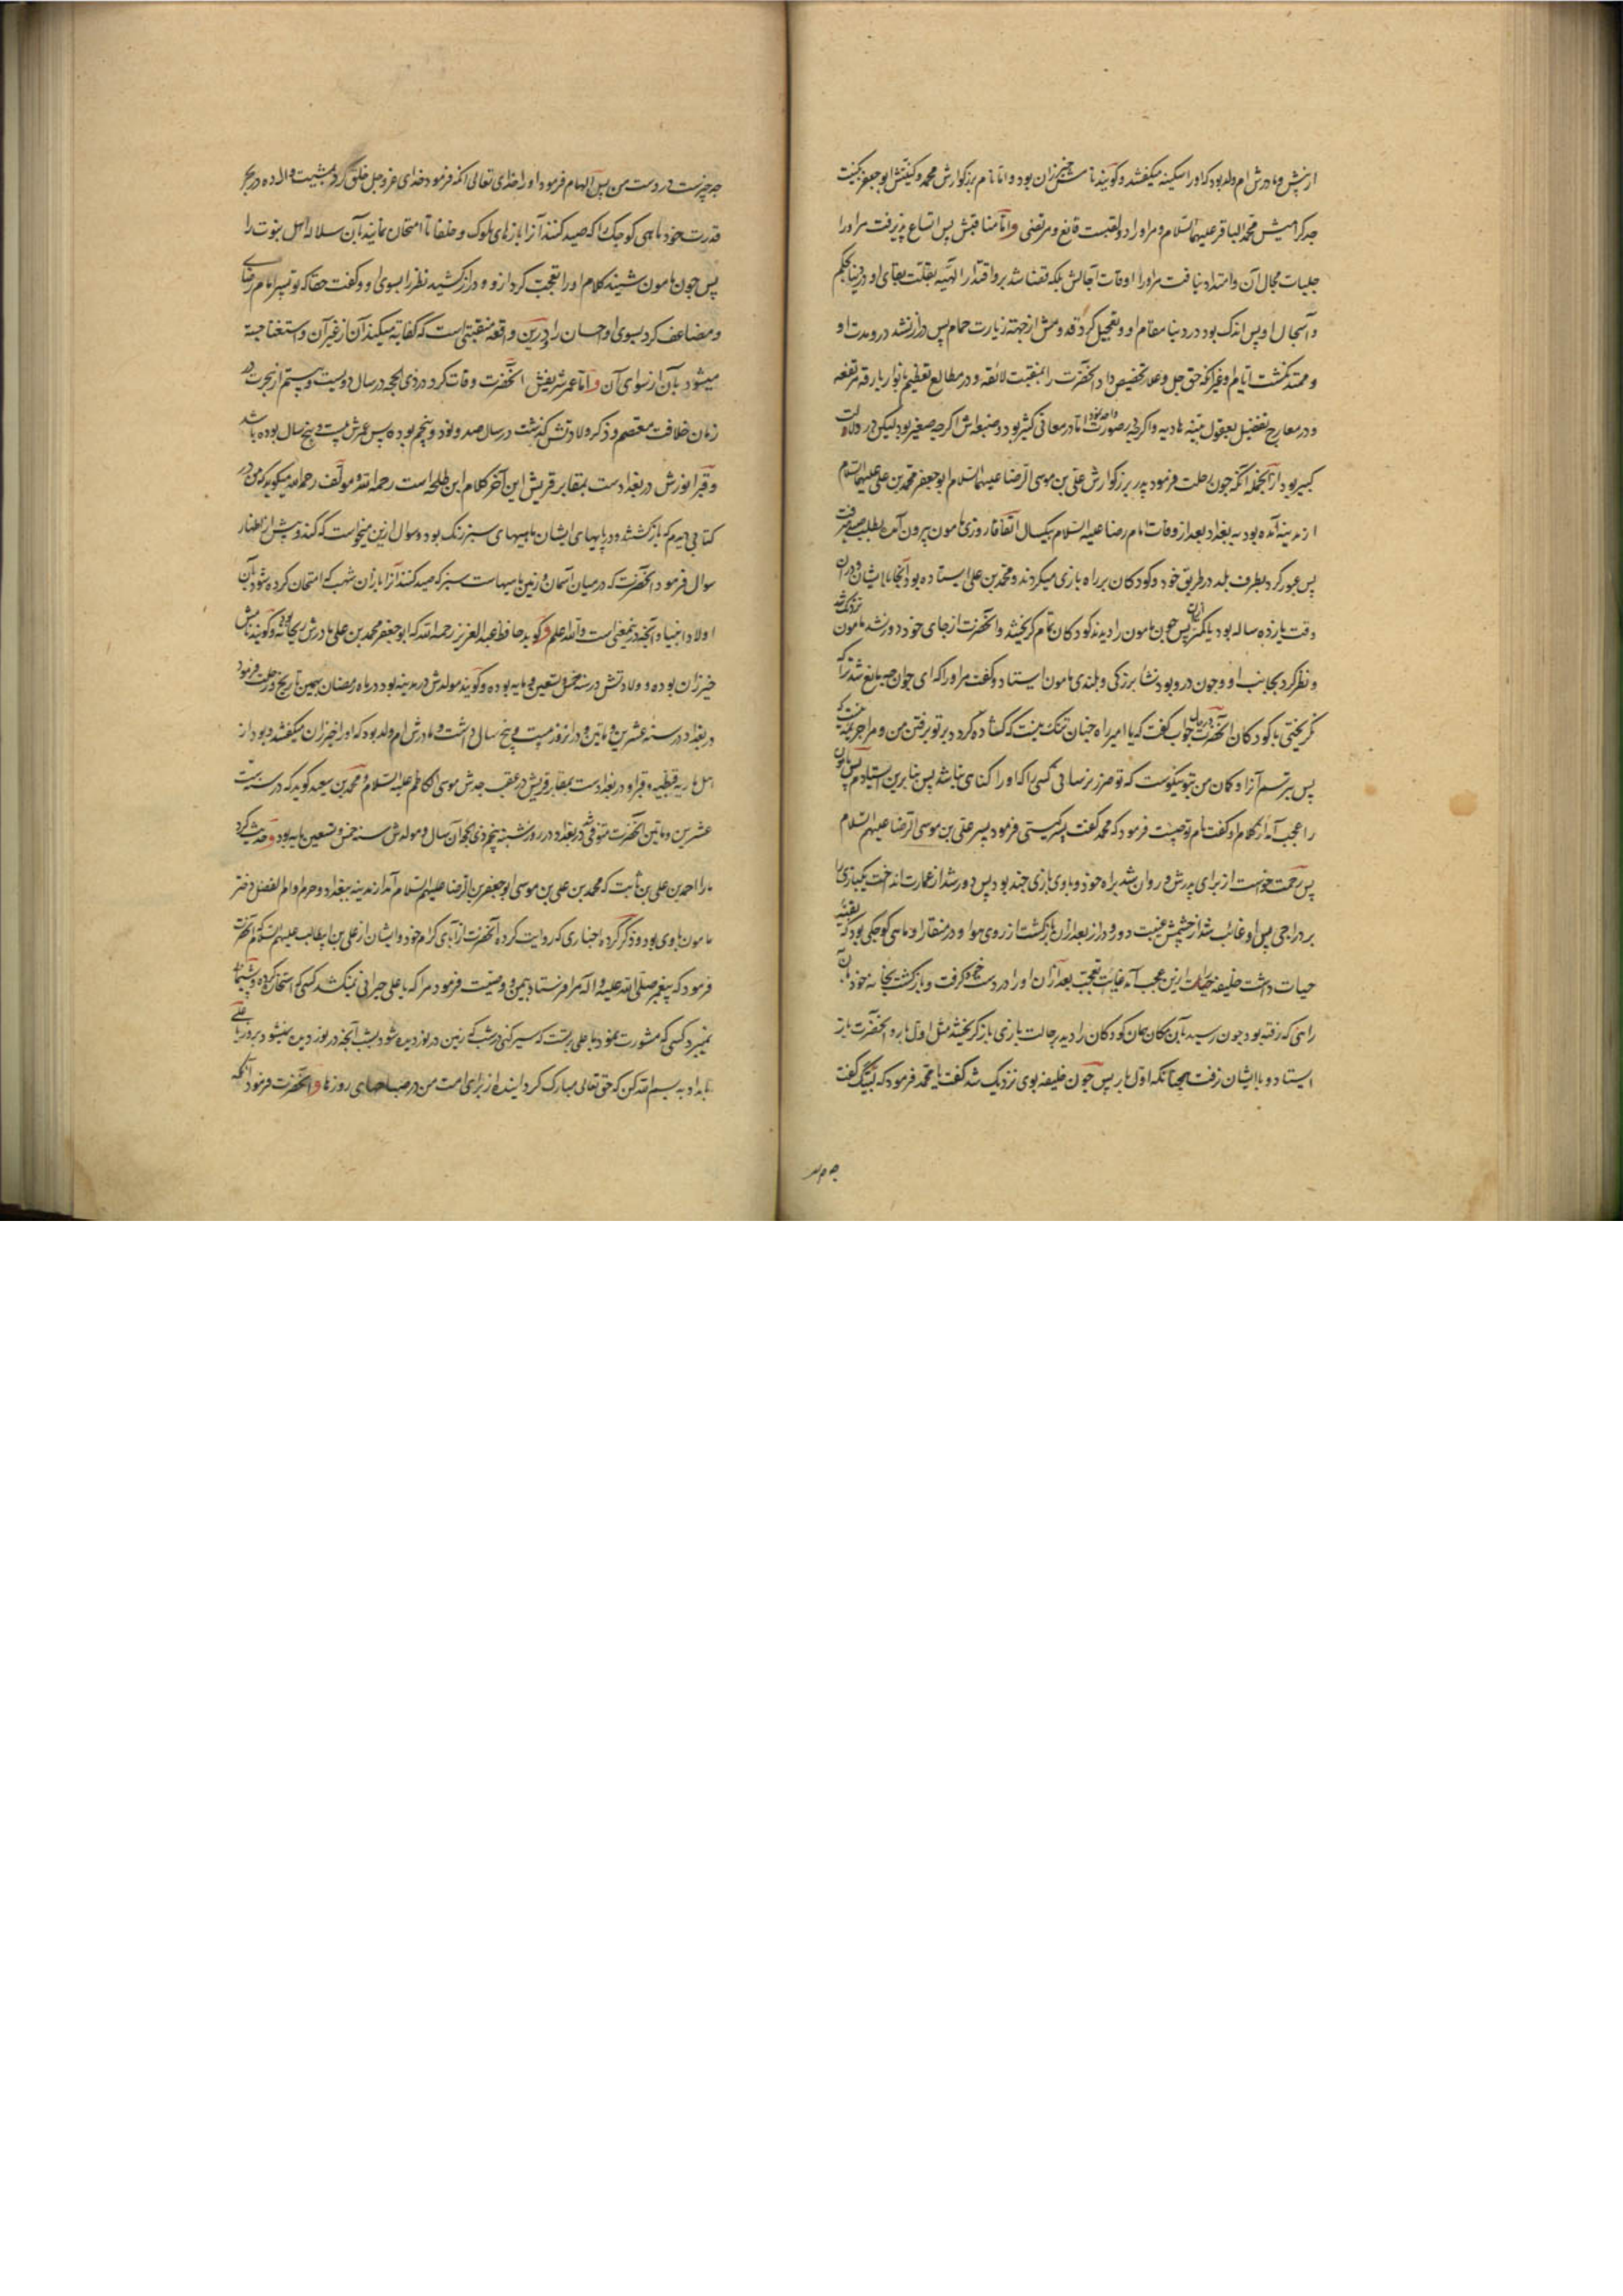 ازپیش و مادرش ام ولد بود که او را سکینه میگفتند و گویند نامش خیزران بود و اما نام بزرگوارش محمد و کنیتش ابو جعفر بکنیت
جد کرامیش محمد الباقر علیهما السلام و مر او را دو لقبست قانع و مرتضی و اما مناقبش پس اتساع نپذیرفت مر او را
جلبات مجال آن و امتداد نیافت مر او را اوقات آجالش بلکه قضا شد بر و اقتدار الهیه بقلت بقای او در دنیا بحکم
و اسجال او پس اندک بود در دنیا مقام او و تعجیل کرد قدومش از جهة زیارت حمام پس دراز نشد درو مدت او
و ممتد نگشت ایام او غیر آنکه حق جل و علا تخصیص داد آنحضرت را بمنقبت لائقه و در مطالع تعظیم بانوار بارقه مرتفعه
و در معارج تفضیل بعقول بینه هادیه و اگر چه بصورت واحد بود اما در معانی کثیر بود و صنعه‌اش اگر چه صغیر بود لیکن در دلالت
کبیر بود از آنجمله آنکه چون رحلت فرمود پدر بزرگوارش علی بن موسی الرضا علیهما السلام ابو جعفر محمد بن علی علیهما السلام
از مدینه آمده بود به بغداد بعد از وفات امام رضا علیه السلام بیکسال اتفاقا روزی مامون بیرون آمد بطلب صید میرفت
پس عبور کرد بطرف بلد در طریق خود و کودکان بر راه بازی میکردند و محمد بن علی ایستاده بود آنجا با ایشان و در آن
وقت یازده ساله بود یا کمتر از آن پس چون مامون را دیدند کودکان تمام گریختند و آنحضرت از جای خود دور نشد مامون نزدیک شد
و نظر کرد بجانب او و چون درو بود نشاء بزرگی و بلندی مامون ایستاد و گفت مر او را که ای جوان چه مانع شد ترا که
نگریختی با کودکان آنحضرت در حال جواب گفت که یا امیر راه چنان تنگ نیست که گشاده گردد بر تو برفتن من و مرا جریمه نیست که
پس بترسم از آن و گمان من بتو نیکوست که تو ضرر نرسانی کسی را که او را گناهی نباشد پس بنا برین ایستادم پس مامون
را عجب آمد از کلام او گفت نام تو چیست فرمود که محمد گفت پسر کیستی فرمود پسر علی بن موسی الرضا علیهم السلام
پس رحمت خواست از برای پدرش و روان شد براه خود و با وی بازی چند بود پس دور شد از عمارت انداخت یکبازی را
بر دراجی پس او غائب شد از چشمش غیبت دور و دراز بعد از آن بازگشت از روی هوا و در منقار او ماهی کوچکی بود که بقیه
حیات داشت خلیفه حیات ازین عجب آمد غایت تعجب بعد از آن او را در دست خود گرفت و بازگشت بخانه خود بآن
راهی که رفته بود چون رسید بآن مکان همان کودکان را دید بر حالت بازی باز گریختند مثل اول بار و آنحضرت باز
ایستاد و با ایشان نرفت همچنانکه اول بار پس چون خلیفه بوی نزدیک شد گفت یا محمد فرمود که لبیک گفت
چه چیزست در دست من پس الهام فرمود او را خدای تعالی آنکه فرمود خدای عز و جل خلق کرد بمشیت و اراده در بحر
قدرت خود ماهی کوچک را که صید کنند آنرا بازهای ملوک و خلفا تا امتحان نمایند بآن سلاله اهل نبوت را
پس چون مامون شنید کلام او را تعجب کرد ازو و دراز کشید نظر را بسوی او و گفت حقا که تو پسر امام رضای
و مضاعف کرد بسوی او احسان را و درین واقعه منقبتی است که کفایه میکند آن از غیر آن و استغنا جسته
میشود بآن از سوای آن و اما عمر شریفش آنحضرت وفات کرد در ذی الحجه در سال دویست و بیستم از هجرت در
زمان خلافت معتصم و ذکر ولادتش گذشت در سال صد و نود و پنجم بوده پس عمرش بیست و پنج سال بوده باشد
و قبر انورش در بغدادست بمقابر قریش این آخر کلام ابن طلحه است رحمه الله و مولف رحمه الله میگوید که من در
کتابی دیدم که باز گشتند و در پایهای ایشان ماهیهای سبز رنگ بود و سوال ازین میخواست که کند و پیش از اظهار
سوال فرمود آنحضرت که در میان آسمان و زمین ماهیهاست سبز که صید کنند آنرا بازان شهب که امتحان کرده شود بآن
اولاد انبیا و آنچه در نیمعنی است والله اعلم و گوید حافظ عبد العزیز رحمه الله که ابو جعفر محمد بن علی مادرش ریحانه بوده و گویند نامش
خیزران بوده و ولادتش در سنه خمس و تسعین و مایه بوده و گویند مولدش در مدینه بود در ماه رمضان بهمین تاریخ و رحلت فرمود
در بغداد در سنه عشرین و ماتین و در انروز بیست و پنج سال داشت و مادرش ام ولد بود که او را خیزران میگفتند و بود از
اهل ماریه قبطیه و قبر او در بغدادست بمقابر قریش در عقب جدش موسی الکاظم علیه السلام و محمد بن سعید گوید که در سنه ست
عشرین و ماتین آنحضرت متوفی در بغداد در روز شنبه پنجم ذی الحجه آن سال و مولدش سنه خمس و تسعین مایه بود و حدیث کرد
ما را احمد بن علی بن ثابت که محمد بن علی بن موسی ابو جعفر بن الرضا علیهم السلام آمد از مدینه ببغداد و حرم او ام الفضل دختر
مامون با وی بود و ذکر کرده اخباری که روایت کرده آنحضرت از آبای کرام خود و ایشان از علی بن ابیطالب علیهم السلام که آنحضرت
فرمود که پیغمبر صلی الله علیه و اله مرا فرستاد بیمن و وصیت فرمود مرا که یا علی حیران نیکشد کسی که استخاره کرده و پشیمان
نمیبرد کسی که مشورت نمود یا علی بر تست که سیر کنی در شب که زمین در نوردیده شود بشب آنچه در نوردیده نمیشود بروز یا علی
بامداد به بسم الله کن که حق تعالی مبارک گردانیده از برای امت من در صباحهای روزها و آنحضرت فرمود آنکه